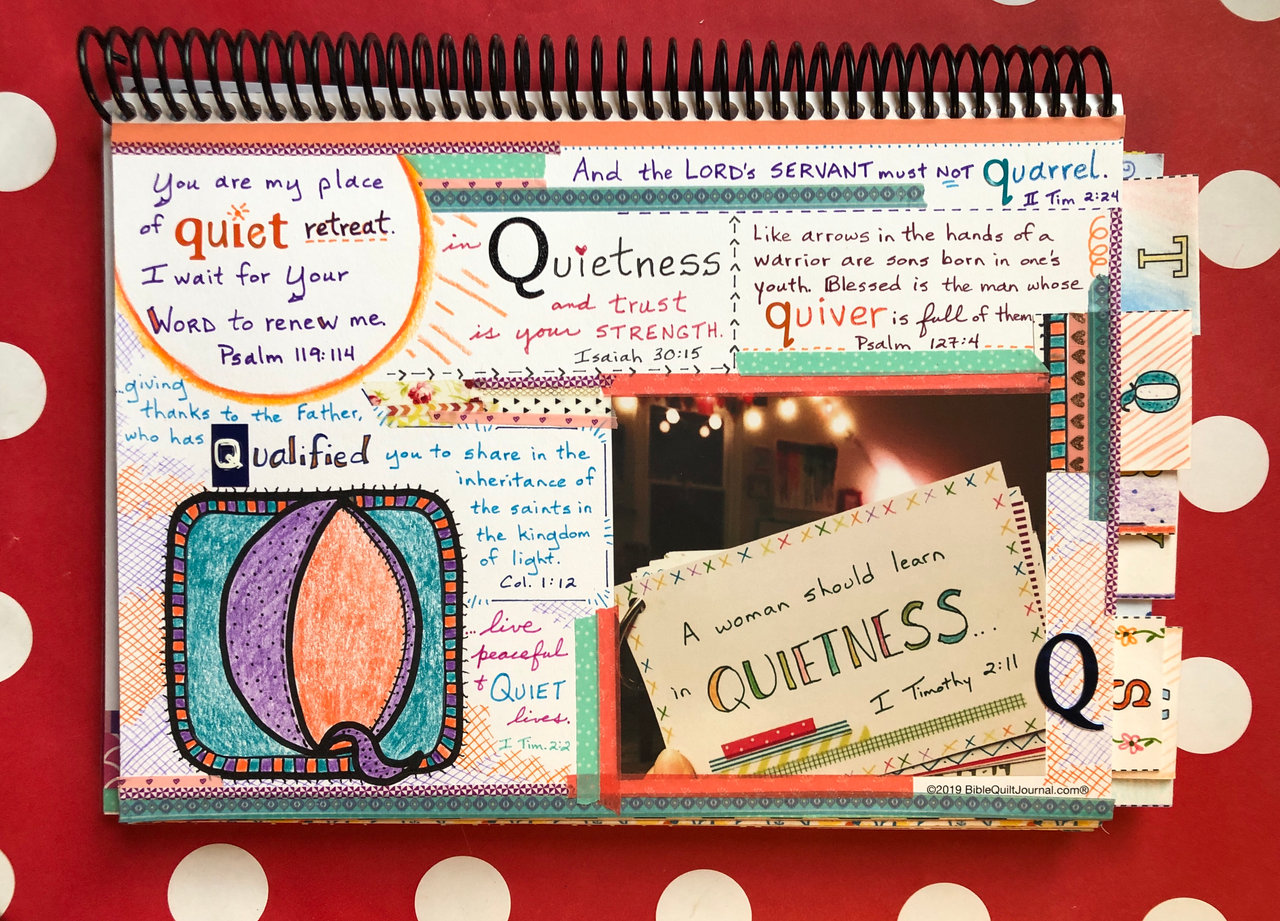 You are my place
of quiet retreat.
I wait for Your
WORD to renew me.
Psalm 119:114
And the LORD's SERVANT must NOT quarrel.
II Tim 2:24
in Quietness
and trust
is your STRENGTH.
Isaiah 30:15
Like arrows in the hands of a
warrior are sons born in one's
youth. Blessed is the man whose
quiver is full of them.
Psalm 127:4
...giving
thanks to the Father,
who has Qualified you to share in the
inheritance of
the saints in
the kingdom
of light.
Col. 1:12
...live
peaceful
+ QUIET
lives.
I Tim. 2:2
Q
A woman should learn
in QUIETNESS...
I Timothy 2:11
Q
©2019 BibleQuiltJournal.com®
T
Q
S